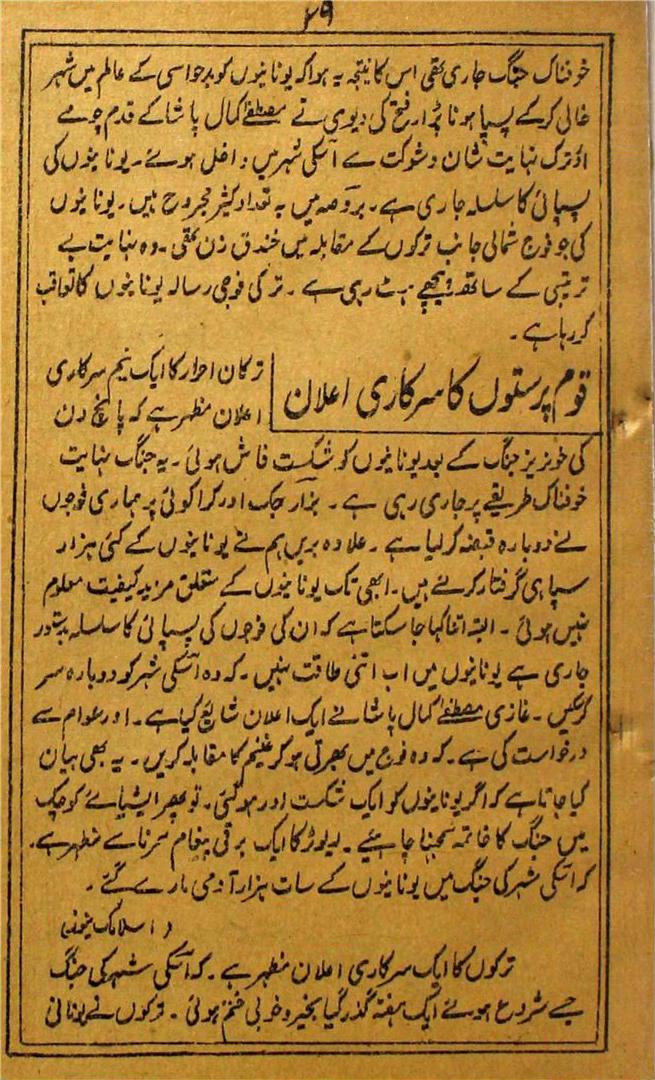 ۲۹
خوفناک جنگ جاری تھی اس کا نتیجہ یہ ہوا کہ یونانیوں کو بدحواسی کے عالم میں شہر
خالی کرکے پسپا ہونا پڑا۔ فتح کی دیوی نے مصطفےٰ کمال پاشا کے قدم چومے
اور ترک نہایت شان و شوکت سے اسکی شہر میں داخل ہوئے۔ یونانیوں کی
پسپائی کا سلسلہ جاری ہے۔ بروصہ میں بہ تعداد کثیر مجروح ہیں۔ یونانیوں
کی جو فوج شمالی جانب ترکوں کے مقابلہ میں خندق زن تھی۔ وہ نہایت بے
ترتیبی کے ساتھ پیچھے ہٹ رہی ہے۔ ترکی فوجی رسالہ یونانیوں کا تعاقب
کر رہا ہے۔
قوم پرستوں کا سرکاری اعلان
ترکان احرار کا ایک نیم سرکاری
اعلان مظہر ہے کہ پانچ دن
کی خونریز جنگ کے بعد یونانیوں کو شکست فاش ہوئی۔ یہ جنگ نہایت
خوفناک طریقے پر جاری رہی ہے۔ بزار جک اور کرا کوئی پر ہماری فوجوں
نے دوبارہ قبضہ کر لیا ہے۔ علاوہ بریں ہم نے یونانیوں کے کئی ہزار
سپاہی گرفتار کرلئے ہیں۔ ابھی تک یونانیوں کے متعلق مزید کیفیت معلوم
نہیں ہوئی۔ البتہ اتنا کہا جا سکتا ہے کہ ان کی فوجوں کی پسپائی کا سلسلہ بدستور
جاری ہے یونانیوں میں اب اتنی طاقت نہیں۔ کہ وہ اسکی شہر کو دوبارہ سر
کرسکیں۔ غازی مصطفےٰ کمال پاشا نے ایک اعلان شائع کیا ہے۔ اور عوام سے
درخواست کی ہے۔ کہ وہ فوج میں بھرتی ہو کر غنیم کا مقابلہ کریں۔ یہ بھی بیان
کیا جاتا ہے کہ اگر یونانیوں کو ایک شکست اور ہو گئی۔ تو پھر ایشیائے کوچک
میں جنگ کا خاتمہ سمجھنا چاہیئے۔ ریوٹر کا ایک برقی پیغام سرنا سے مظہر ہے۔
کہ اسکی شہر کی جنگ میں یونانیوں کے سات ہزار آدمی مارے گئے۔
(اسلامک نیوز)
ترکوں کا ایک سرکاری اعلان مظہر ہے۔ کہ اسکی شہر کی جنگ
جسے شروع ہوئے ایک ہفتہ گذر گیا بخیر و خوبی ختم ہوئی۔ ترکوں نے یونانی